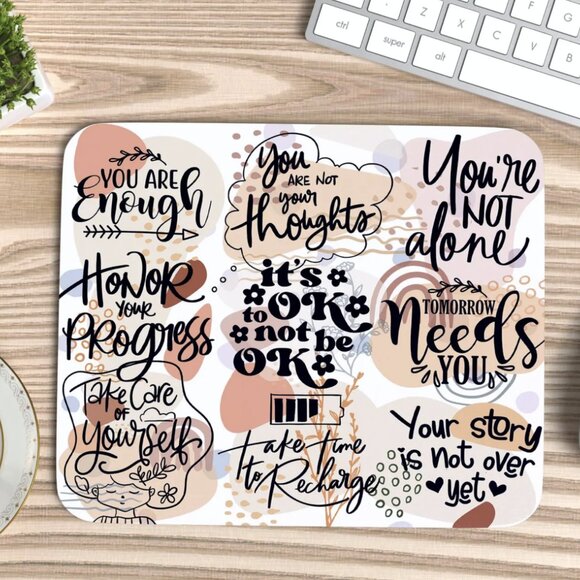 YOU ARE
Enough
You
ARE NOT
your
thoughts
You're
NOT
alone
HONOR
YOUR
PROGRESS
it's
to OK
not be
OK
TOMORROW
Needs
YOU
Take Care
OF
Yourself
take time
to Recharge
Your story
is not over
yet
ctrl
super
alt
Z
X
C
V
B